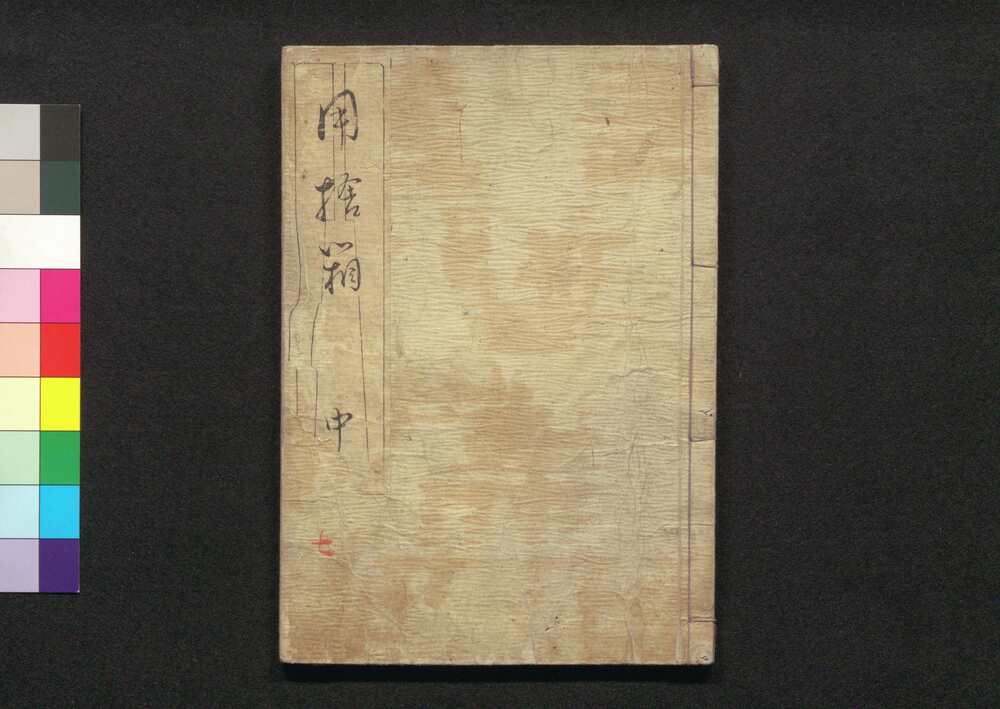 用捨箱
中
七